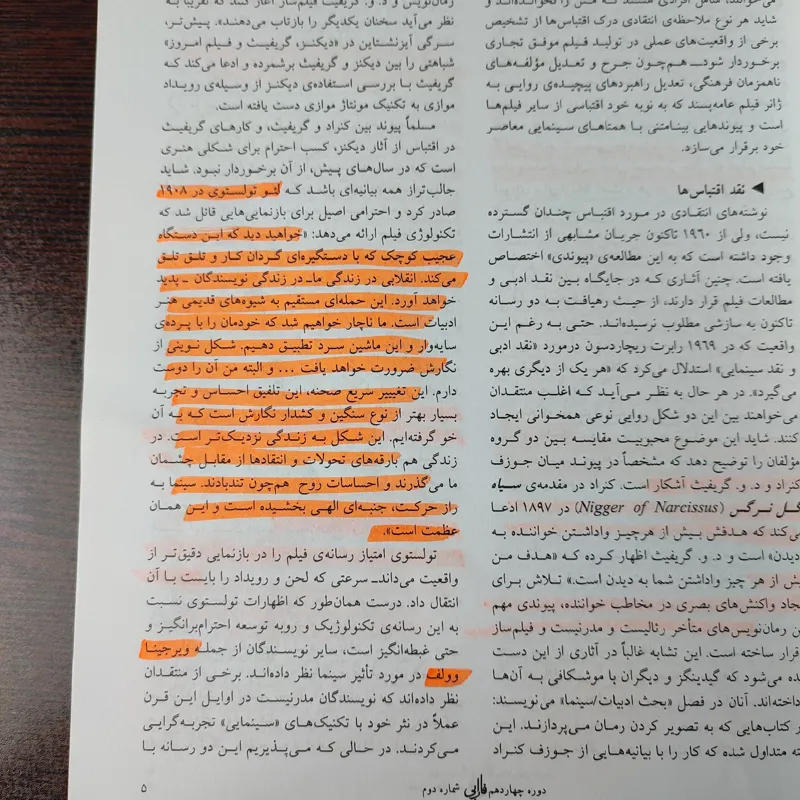 می‌خوانند، شامل افرادی هستند که فیلم را نخوانده‌اند و
شاید هر نوع ملاحظه‌ی انتقادی درک اقتباس‌ها از تشخیص
برخی از واقعیت‌های عملی در تولید فیلم موفق تجاری
برخوردار شود ـ هم‌چون جرح و تعدیل مؤلفه‌های
ناهمزمان فرهنگی، تعدیل راهبردهای پیچیده‌ی روایی به
ژانر فیلم عامه‌پسند که به نوبه خود اقتباسی از سایر فیلم‌ها
است و پیوندهایی بینامتنی با همتاهای سینمایی معاصر
خود برقرار می‌سازد.
◄ نقد اقتباس‌ها
نوشته‌های انتقادی در مورد اقتباس چندان گسترده
نیست، ولی از ۱۹۶۰ تاکنون جریان مشابهی از انتشارات
وجود داشته است که به این مطالعه‌ی «پیوندی» اختصاص
یافته است. چنین آثاری که در جایگاه بین نقد ادبی و
مطالعات فیلم قرار دارند، از حیث رهیافت به دو رسانه
تاکنون به سازشی مطلوب نرسیده‌اند. حتی به رغم این
واقعیت که در ۱۹۶۹ رابرت ریچاردسون درمورد «نقد ادبی
و نقد سینمایی» استدلال می‌کرد که «هر یک از دیگری بهره
می‌گیرد». در هر حال به نظر می‌آید که اغلب منتقدان
می‌خواهند بین این دو شکل روایی نوعی همخوانی ایجاد
کنند. شاید این موضوع محبوبیت مقایسه بین دو گروه
مؤلفان را توضیح دهد که مشخصاً در پیوند میان جوزف
کنراد و د. و. گریفیث آشکار است. کنراد در مقدمه‌ی سیاه
گل نرگس (Nigger of Narcissus) در ۱۸۹۷ ادعا
می‌کند که هدفش بیش از هرچیز واداشتن خواننده به
دیدن» است و د. و. گریفیث اظهار کرده که «هدف من
بیش از هر چیز واداشتن شما به دیدن است.» تلاش برای
ایجاد واکنش‌های بصری در مخاطب خواننده، پیوندی مهم
بین رمان‌نویس‌های متأخر رئالیست و مدرنیست و فیلم‌ساز
قرار ساخته است. این تشابه غالباً در آثاری از این دست
ده می‌شود که گیدینگز و دیگران با موشکافی به آن‌ها
داخته‌اند. آنان در فصل «بحث ادبیات/سینما» می‌نویسند:
ر کتاب‌هایی که به تصویر کردن رمان می‌پردازند. این
ته متداول شده که کار را با بیانیه‌هایی از جوزف کنراد
رمان‌نویس و د. و. گریفیث فیلم‌ساز آغاز کنند که تقریباً به
نظر می‌آید سخنان یکدیگر را بازتاب می‌دهند». پیش‌تر،
سرگی آیزنشتاین در «دیکنز، گریفیث و فیلم امروز»
شباهتی را بین دیکنز و گریفیث برشمرده و ادعا می‌کند که
گریفیث با بررسی استفاده‌ی دیکنز از وسیله‌ی رویداد
موازی به تکنیک مونتاژ موازی دست یافته است.
مسلماً پیوند بین کنراد و گریفیث، و کارهای گریفیث
در اقتباس از آثار دیکنز، کسب احترام برای شکلی هنری
است که در سال‌های پیش، از آن برخوردار نبود. شاید
جالب‌تراز همه بیانیه‌ای باشد که لئو تولستوی در ۱۹۰۸
صادر کرد و احترامی اصیل برای بازنمایی‌هایی قائل شد که
تکنولوژی فیلم ارائه می‌دهد: «خواهید دید که این دستگاه
عجیب کوچک که با دستگیره‌ای گردان کار و تلق تلق
می‌کند. انقلابی در زندگی ما ـ در زندگی نویسندگان ـ پدید
خواهد آورد. این حمله‌ای مستقیم به شیوه‌های قدیمی هنر
ادبیات است. ما ناچار خواهیم شد که خودمان را با پرده‌ی
سایه‌وار و این ماشین سرد تطبیق دهیم. شکل نوینی از
نگارش ضرورت خواهد یافت ... و البته من آن را دوست
دارم. این تغییر سریع صحنه، این تلفیق احساس و تجربه
بسیار بهتر از نوع سنگین و کشدار نگارش است که به آن
خو گرفته‌ایم. این شکل به زندگی نزدیک‌تر است. در
زندگی هم بارقه‌های تحولات و انتقادها از مقابل چشمان
ما می‌گذرند و احساسات روح هم‌چون تندبادند. سینما به
راز حرکت، جنبه‌ای الهی بخشیده است و این همان
عظمت است».
تولستوی امتیاز رسانه‌ی فیلم را در بازنمایی دقیق‌تر از
واقعیت می‌داند ـ سرعتی که لحن و رویداد را بایست با آن
انتقال داد. درست همان‌طور که اظهارات تولستوی نسبت
به این رسانه‌ی تکنولوژیک و روبه توسعه احترام‌برانگیز و
حتی غبطه‌انگیز است، سایر نویسندگان از جمله ویرجینا
وولف در مورد تأثیر سینما نظر داده‌اند. برخی از منتقدان
نظر داده‌اند که نویسندگان مدرنیست در اوایل این قرن
عملاً در نثر خود با تکنیک‌های «سینمایی» تجربه‌گرایی
می‌کردند. در حالی که می‌پذیریم این دو رسانه با
دوره چهاردهم فارابی شماره دوم ۵